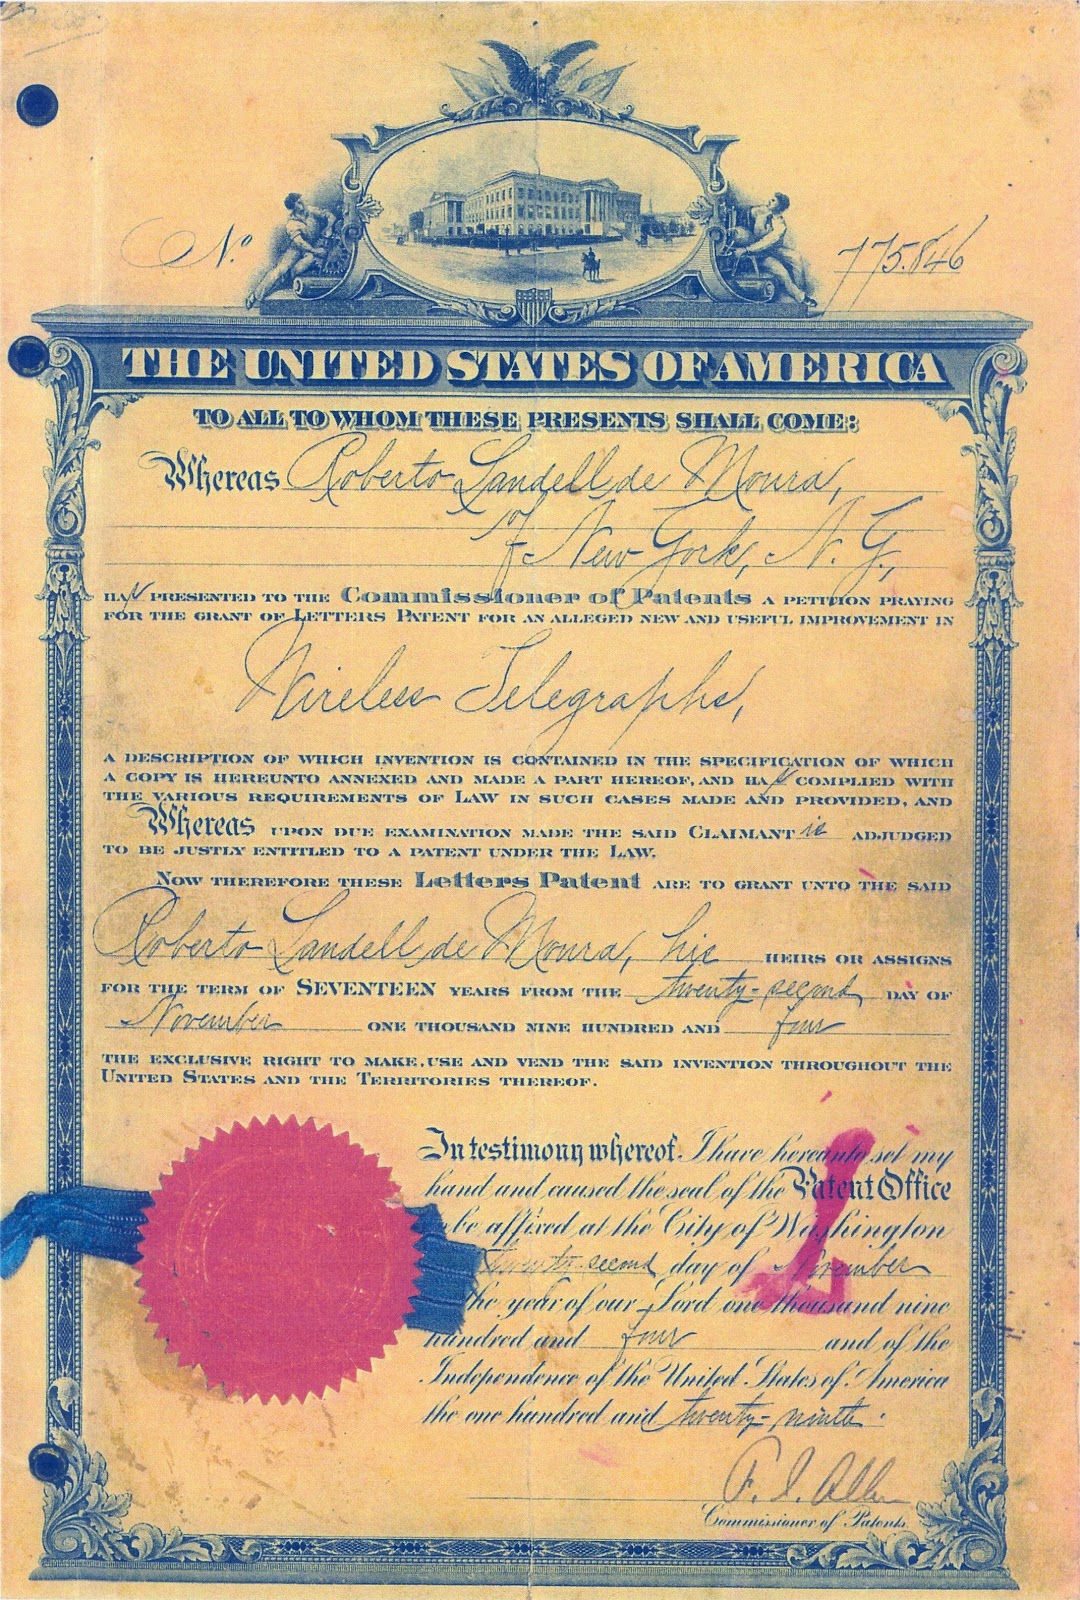 No. 775.846
THE UNITED STATES OF AMERICA
TO ALL TO WHOM THESE PRESENTS SHALL COME:
Whereas Roberto Landell de Moura,
of New York, N. Y.,
HAS PRESENTED TO THE Commissioner of Patents A PETITION PRAYING
FOR THE GRANT OF LETTERS PATENT FOR AN ALLEGED NEW AND USEFUL IMPROVEMENT IN
Wireless Telegraphs,
A DESCRIPTION OF WHICH INVENTION IS CONTAINED IN THE SPECIFICATION OF WHICH
A COPY IS HEREUNTO ANNEXED AND MADE A PART HEREOF, AND HAS COMPLIED WITH
THE VARIOUS REQUIREMENTS OF LAW IN SUCH CASES MADE AND PROVIDED, AND
Whereas UPON DUE EXAMINATION MADE THE SAID CLAIMANT is ADJUDGED
TO BE JUSTLY ENTITLED TO A PATENT UNDER THE LAW.
NOW THEREFORE THESE Letters Patent ARE TO GRANT UNTO THE SAID
Roberto Landell de Moura, his HEIRS OR ASSIGNS
FOR THE TERM OF SEVENTEEN YEARS FROM THE twenty-second DAY OF
November ONE THOUSAND NINE HUNDRED AND four
THE EXCLUSIVE RIGHT TO MAKE, USE AND VEND THE SAID INVENTION THROUGHOUT THE
UNITED STATES AND THE TERRITORIES THEREOF.
In testimony whereof, I have hereunto set my
hand and caused the seal of the Patent Office
to be affixed at the City of Washington
twenty-second day of November
the year of our Lord one thousand nine
hundred and four and of the
Independence of the United States of America
the one hundred and twenty-ninth.
F. I. Allen
Commissioner of Patents.